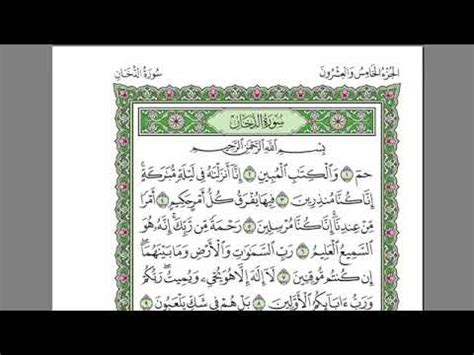 الجزء الخامس والعشرون
سورة الدخان
سُورَةُ الدُّخَانِ
بِسْمِ اللَّهِ الرَّحْمَٰنِ الرَّحِيمِ
حمٓ ١ وَٱلْكِتَٰبِ ٱلْمُبِينِ ٢ إِنَّآ أَنزَلْنَٰهُ فِى لَيْلَةٍ مُّبَٰرَكَةٍ ۚ
إِنَّا كُنَّا مُنذِرِينَ ٣ فِيهَا يُفْرَقُ كُلُّ أَمْرٍ حَكِيمٍ ٤ أَمْرًا
مِّنْ عِندِنَآ ۚ إِنَّا كُنَّا مُرْسِلِينَ ٥ رَحْمَةً مِّن رَّبِّكَ ۚ إِنَّهُۥ هُوَ
ٱلسَّمِيعُ ٱلْعَلِيمُ ٦ رَبِّ ٱلسَّمَٰوَٰتِ وَٱلْأَرْضِ وَمَا بَيْنَهُمَآ ۖ
إِن كُنتُم مُّوقِنِينَ ٧ لَآ إِلَٰهَ إِلَّا هُوَ يُحْىِۦ وَيُمِيتُ ۖ رَبُّكُمْ
وَرَبُّ ءَابَآئِكُمُ ٱلْأَوَّلِينَ ٨ بَلْ هُمْ فِى شَكٍّ يَلْعَبُونَ ٩